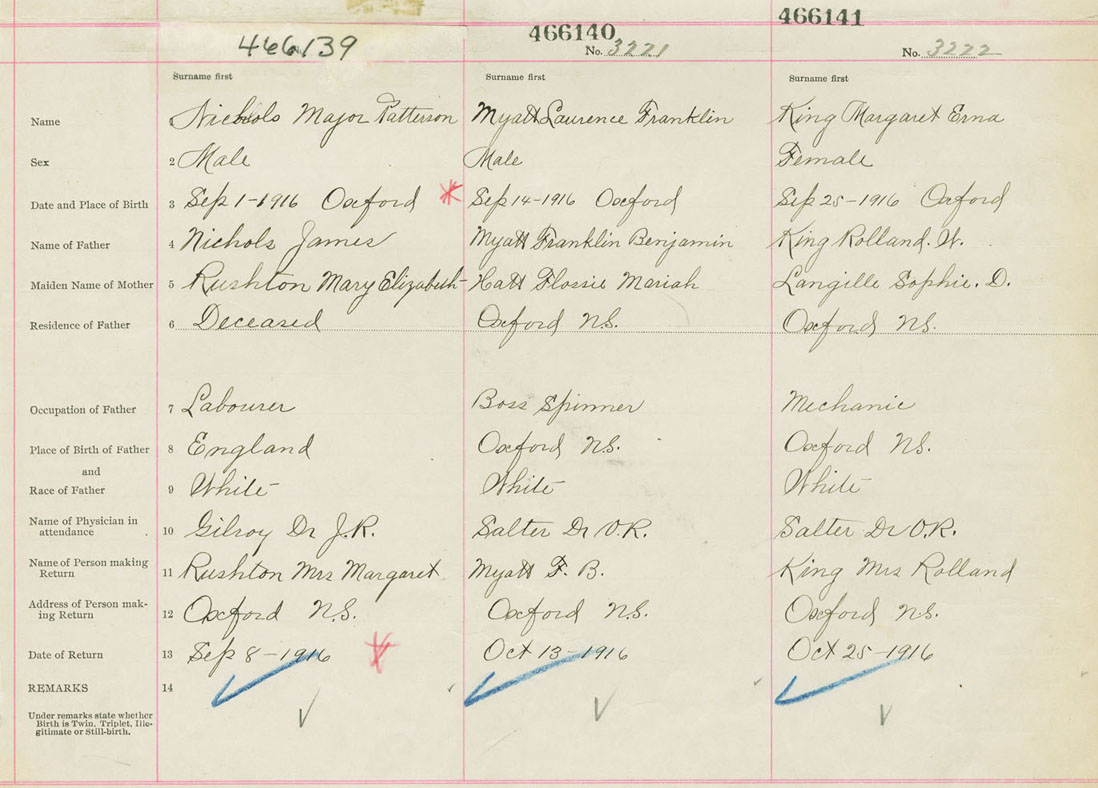 466139 466140 466141
No. 3221 No. 3222
Surname first Surname first Surname first
Name 1 Nichols Major Patterson Myatt Laurence Franklin King Margaret Erna
Sex 2 Male Male Female
Date and Place of Birth 3 Sep 1-1916 Oxford Sep 14-1916 Oxford Sep 25-1916 Oxford
Name of Father 4 Nichols James Myatt Franklin Benjamin King Rolland. W.
Maiden Name of Mother 5 Rushton Mary Elizabeth Hatt Flossie Meriah Langille Sophie. D.
Residence of Father 6 Deceased Oxford N.S. Oxford N.S.
Occupation of Father 7 Labourer Boss Spinner Mechanic
Place of Birth of Father 8 England Oxford N.S. Oxford N.S.
and
Race of Father 9 White White White
Name of Physician in
attendance 10 Gilroy Dr J.R. Salter Dr O.R. Salter Dr O.R.
Name of Person making
Return 11 Rushton Mrs Margaret Myatt F. B. King Mrs Rolland
Address of Person mak-
ing Return 12 Oxford N.S. Oxford N.S. Oxford N.S.
Date of Return 13 Sep 8-1916 Oct 13-1916 Oct 25-1916
REMARKS 14
Under remarks state whether
Birth is Twin, Triplet, Ille-
gitimate or Still-birth.